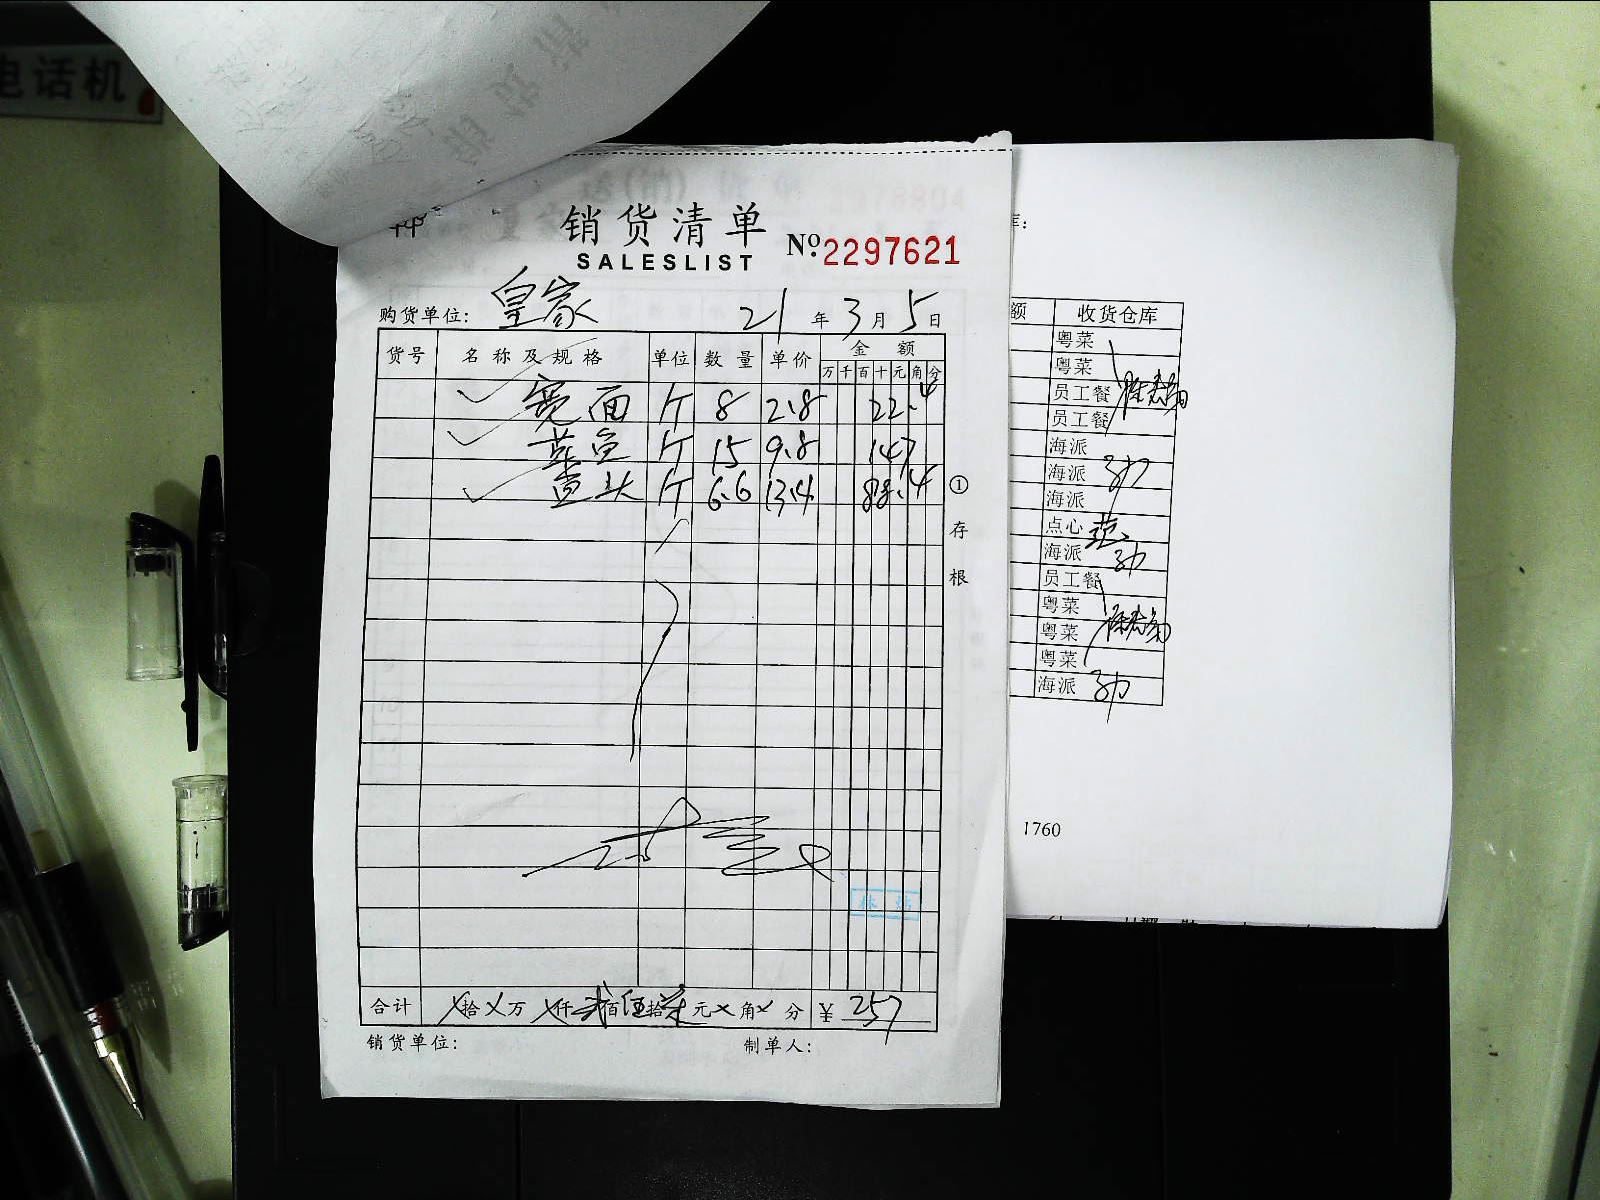 电话机
销货清单
SALESLIST
No. 2297621
购货单位: 皇家 21 年 3 月 5 日
货号 名称及规格 单位 数量 单价 金额
万 千 百 十 元 角 分
宽面 斤 8 2.8 22.4
斤 15 9.8 147
斤 6.6 13.4 88.4
① 存根
合计 ㄨ拾ㄨ万 ㄨ仟 贰佰伍拾柒元ㄨ角ㄨ分 ¥ 257
销货单位: 制单人:
库:
额 收货仓库
粤菜
粤菜
员工餐
员工餐
海派
海派
海派
点心
海派
员工餐
粤菜
粤菜
粤菜
海派
1760